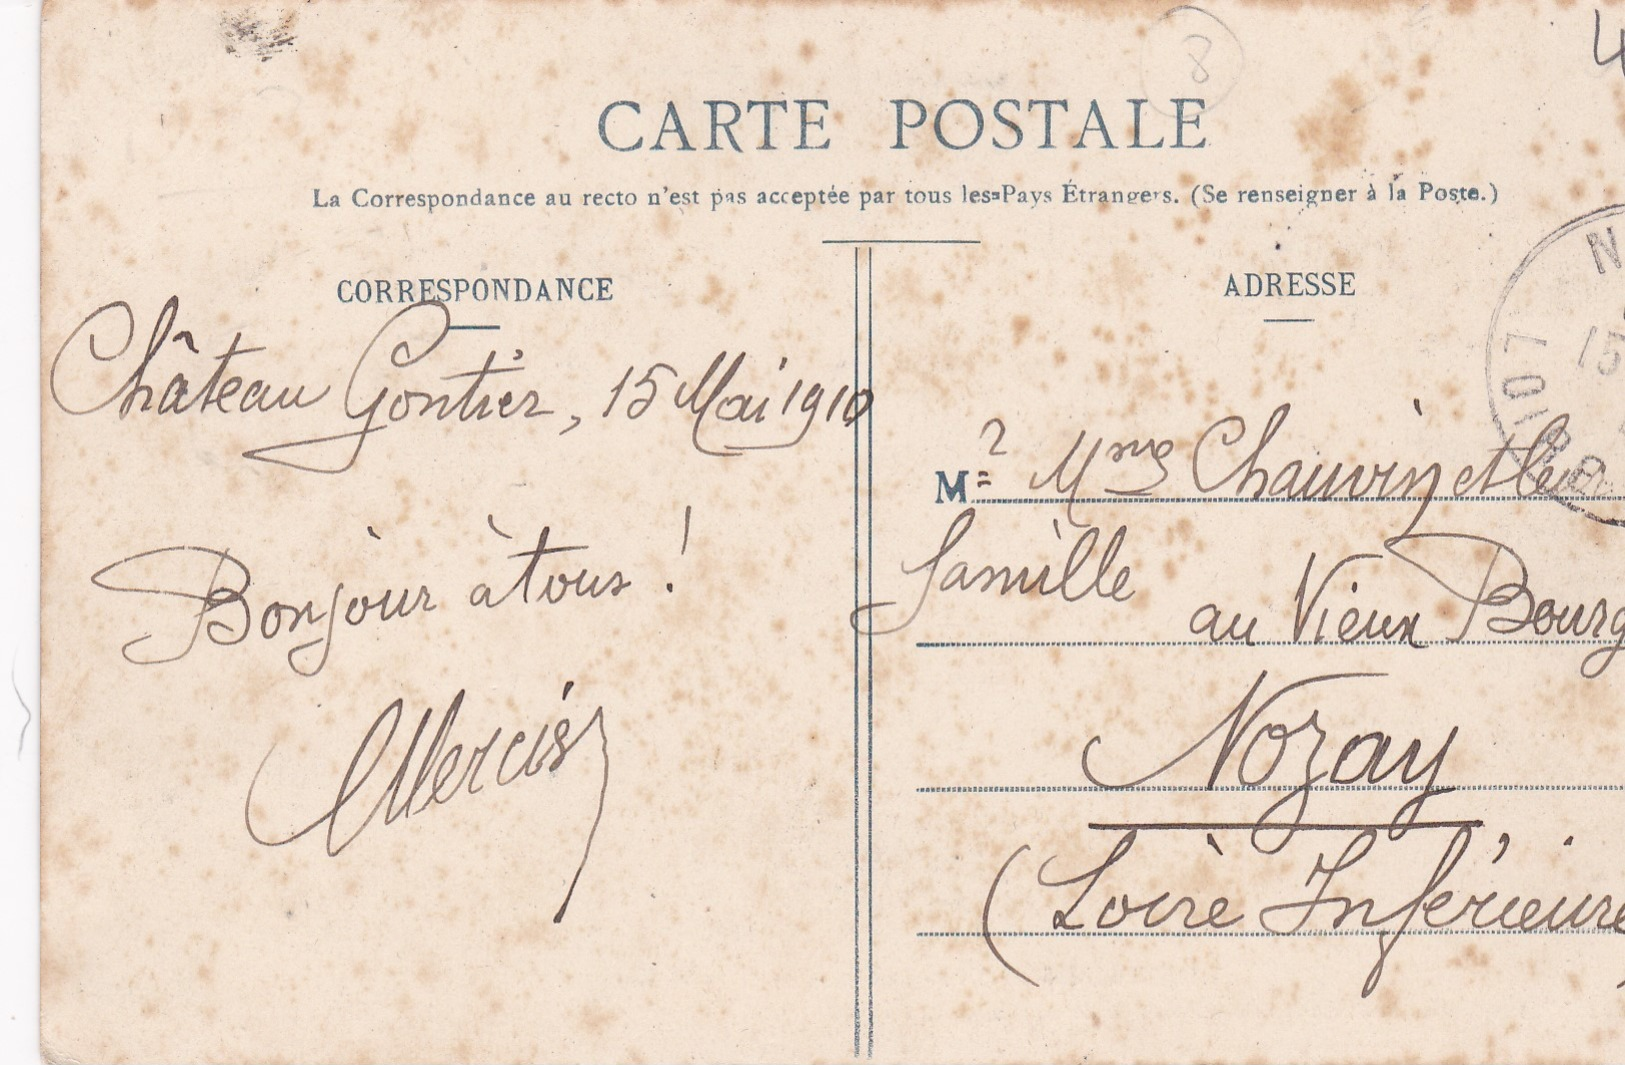 8
CARTE POSTALE
La Correspondance au recto n'est pas acceptée par tous les Pays Étrangers. (Se renseigner à la Poste.)
CORRESPONDANCE
Château Gontier, 15 Mai 1910
Bonjour à tous !
ADRESSE
M
Chauvin et leur
famille
au Vieux Bourg
Nozay
(Loire Inférieure
15
LOIRE